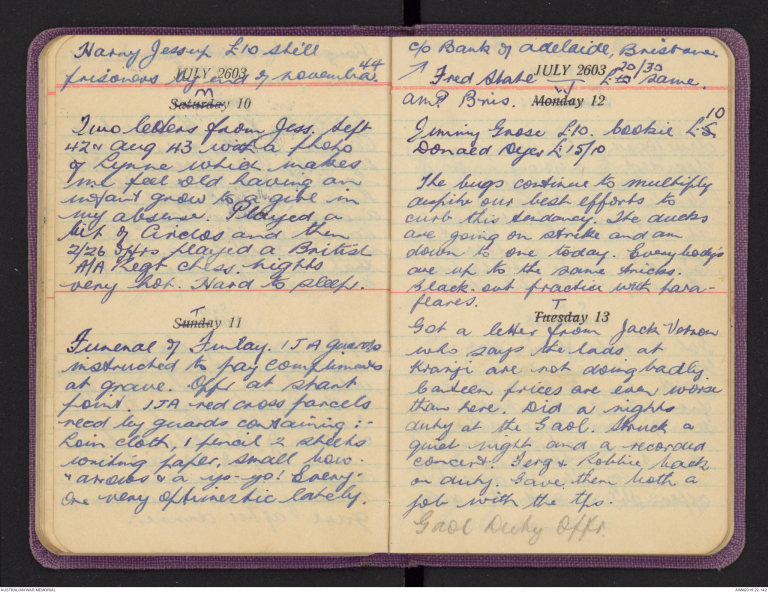 Harry Jessup £10 still
prisoners by end of november 44
JULY 2603
M
Saturday 10
Two letters from Jess. Sept
42 & Aug 43 with a photo
of Lynne which makes
me feel old having an
infant grow to a girl in
my absence. Played a
bit of Circlos and then
2/26 offrs played a British
A/A Regt chess. nights
very hot. Hard to sleep.
T
Sunday 11
Funeral of Finlay. IJA guards
instructed to pay compliments
at grave. Offr at shant
point. IJA red cross parcels
recd by guards containing :-
Loin cloth, 1 pencil 2 sheets
writing paper, small bow
& arrows & a yo-yo! Every-
one very optimistic lately.
c/o Bank of Adelaide, Brisbane.
JULY 2603
Fred State £20/30 same.
AMP Bris.
W
Monday 12
Jimmy Grose £10. bookie £5 10
Donald Dyer £15/10
The bugs continue to multiply
despite our best efforts to
curb this tendency. The ducks
are going on strike and am
down to one today. Everybody's
are up to the same tricks.
Black-out practice with para-
flares.
T
Tuesday 13
Got a letter from Jack Vernon
who says the lads at
Kranji are not doing badly.
Canteen prices are even worse
than here. Did a nights
duty at the Gaol. Struck a
quiet night and a recorded
concert. Ferg & Robbie back
on duty. Gave them both a
job with the tps.
Gaol Duty Offr.
AUSTRALIAN WAR MEMORIAL
AWM2018.22.142